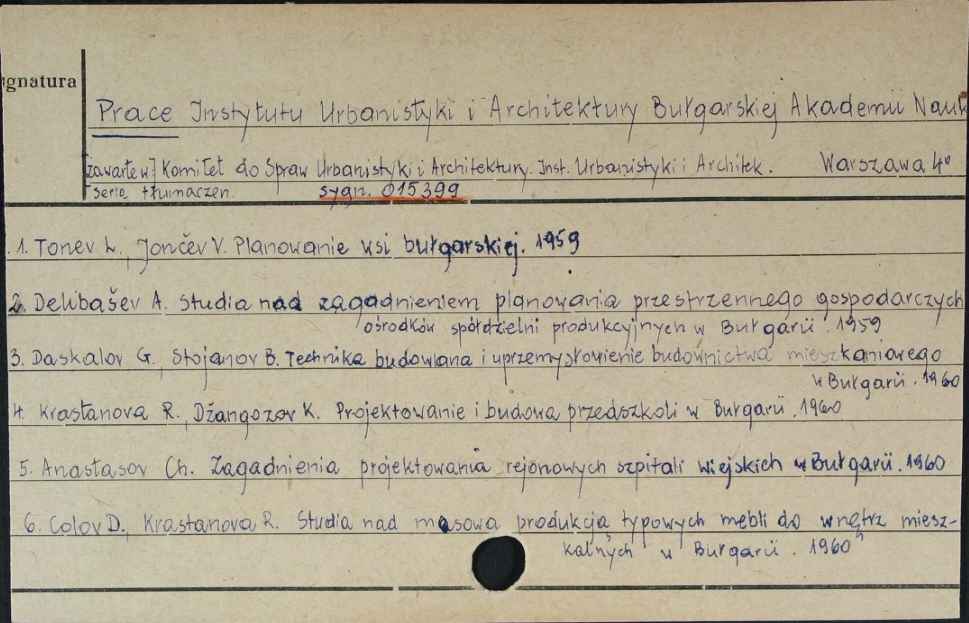 gnatura
Prace Instytutu Urbanistyki i Architektury Bułgarskiej Akademii Nauk
[zawarte w] Komitet do Spraw Urbanistyki i Architektury. Inst. Urbanistyki i Architek. Warszawa 4°
seria tłumaczeń. sygn. 015399
1. Tonev L., Jončev V. Planowanie wsi bułgarskiej. 1959
2. Delibašev A. Studia nad zagadnieniem planowania przestrzennego gospodarczych
ośrodków spółdzielni produkcyjnych w Bułgarii. 1959
3. Daskalov G., Stojanov B. Technika budowlana i uprzemysłowienie budownictwa mieszkaniowego
w Bułgarii. 1960
4. Krastanova R., Džangozov K. Projektowanie i budowa przedszkoli w Bułgarii. 1960
5. Anastasov Ch. Zagadnienia projektowania rejonowych szpitali wiejskich w Bułgarii. 1960
6. Colov D., Krastanova R. Studia nad masową produkcją typowych mebli do wnętrz miesz-
kalnych w Bułgarii. 1960